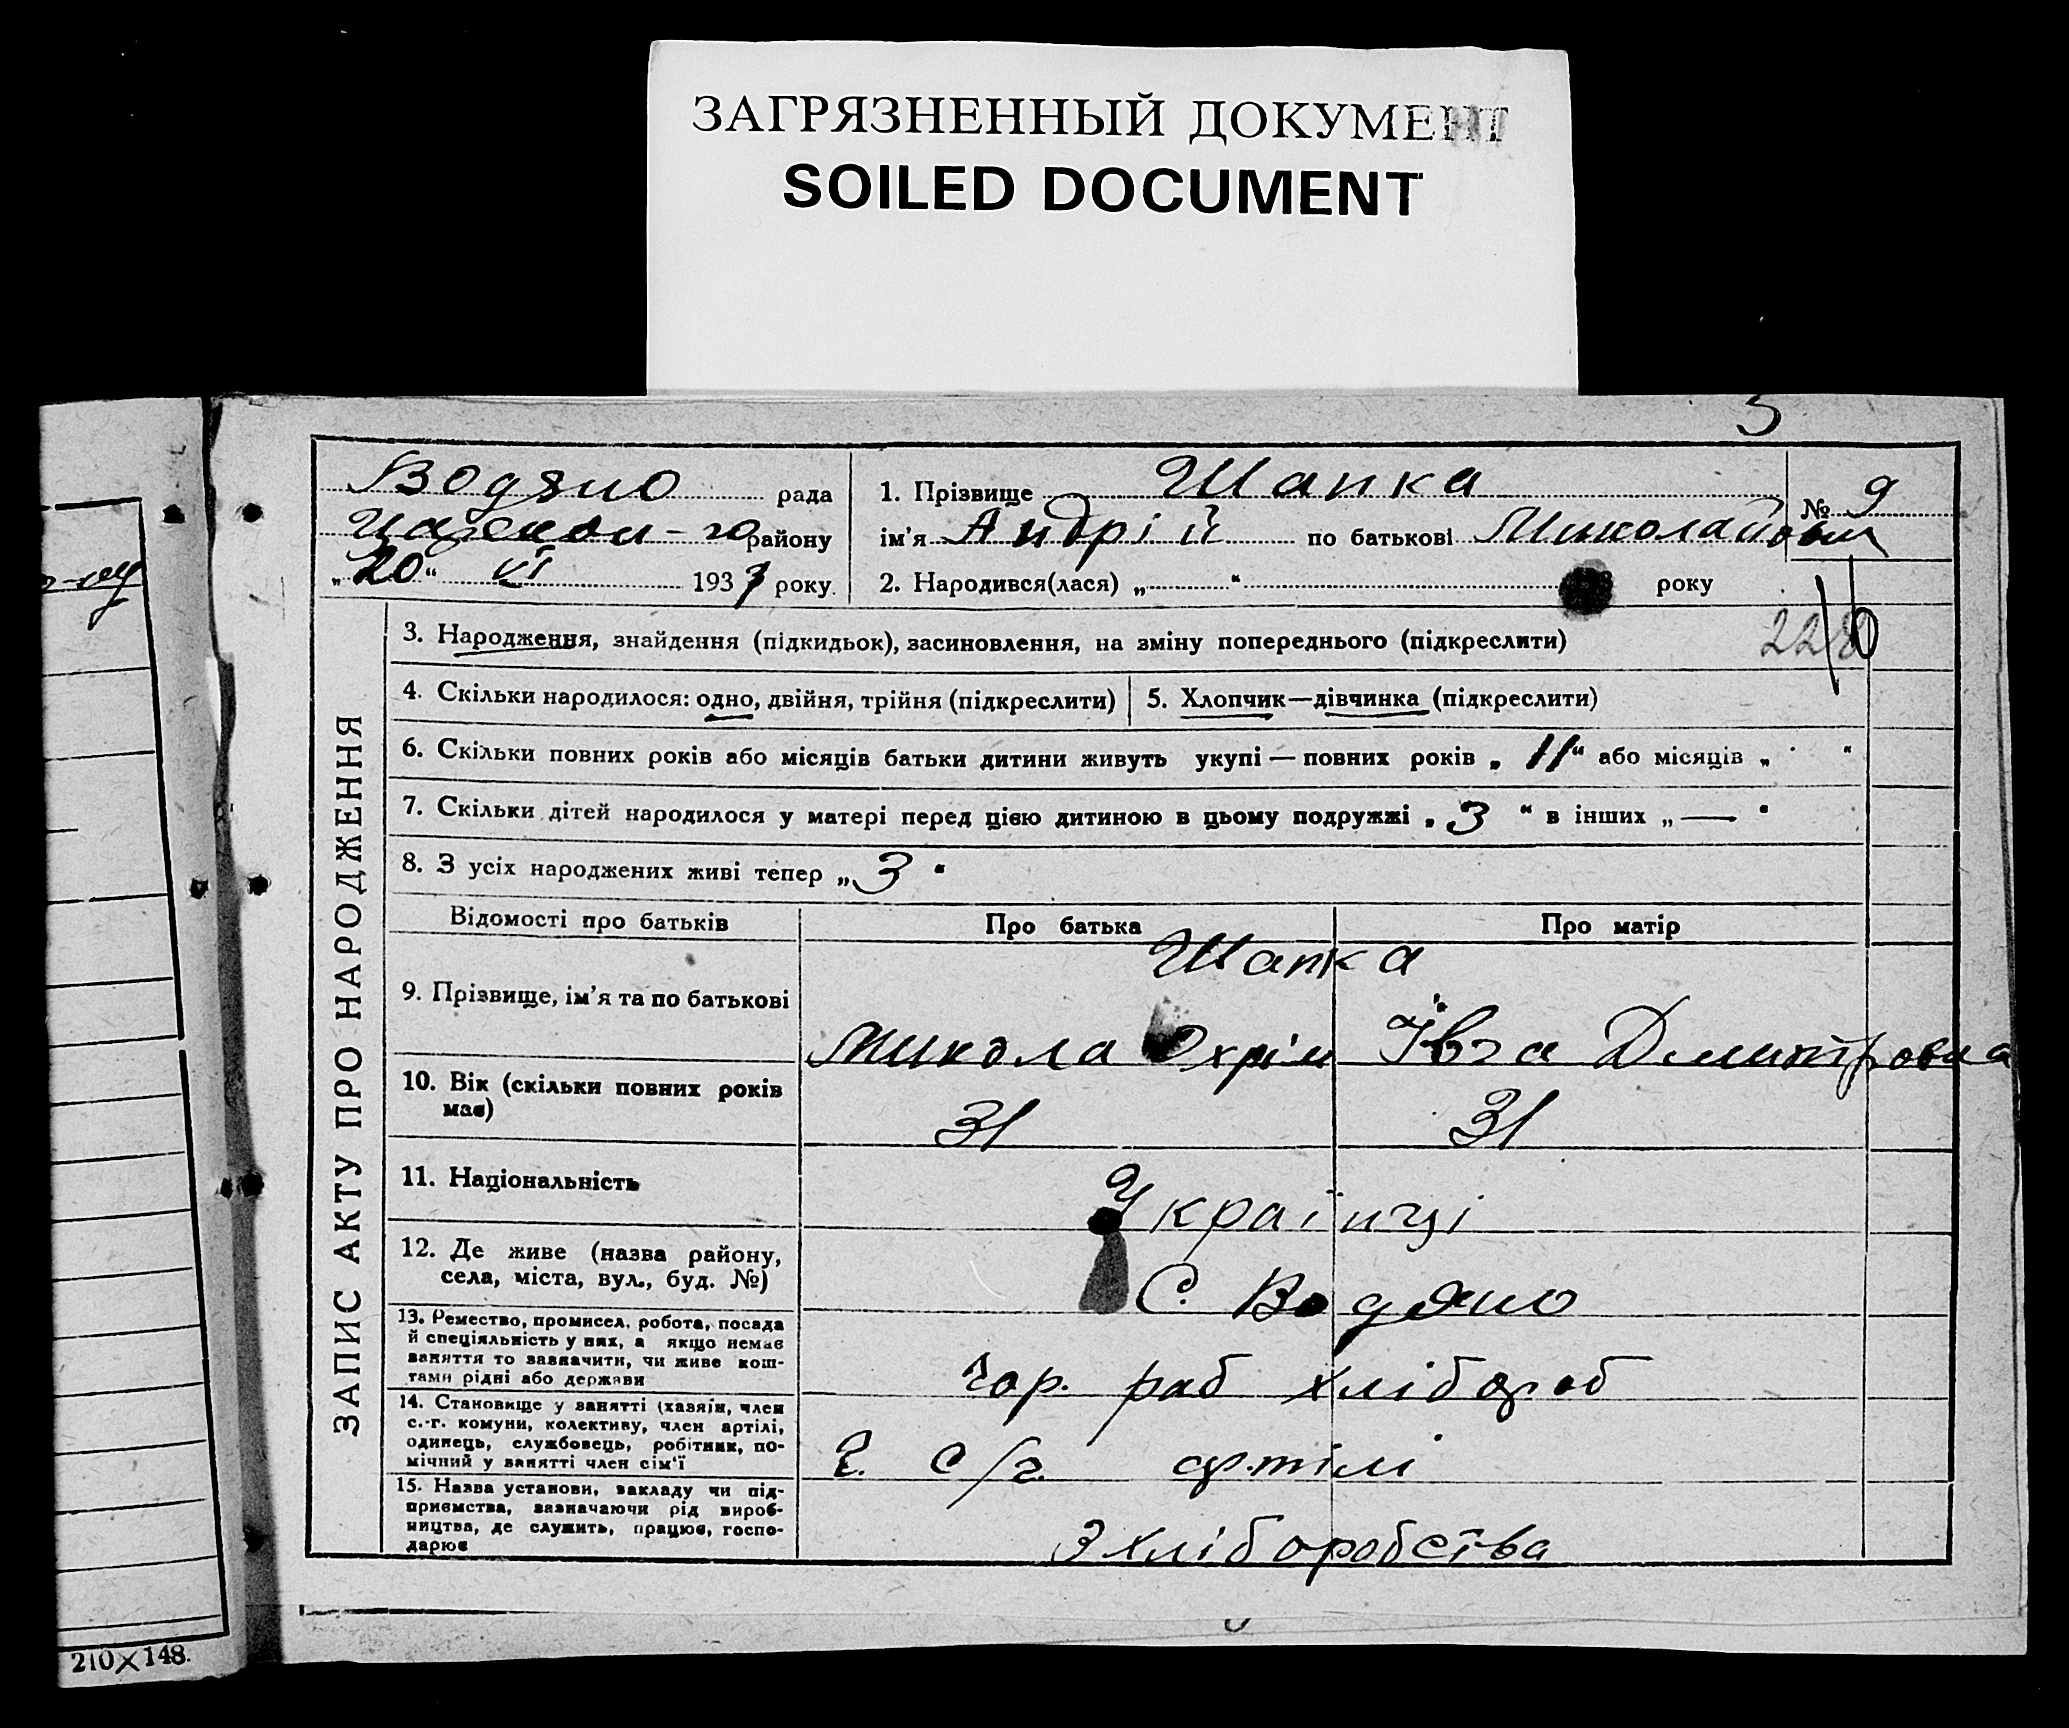 ЗАГРЯЗНЕННЫЙ ДОКУМЕНТ
SOILED DOCUMENT
Водяно рада
району
„20“ VI 1933 року
1. Прізвище Шапка
№ 9
ім'я Андрій по батькові Миколайович
2. Народився(лася) „ “ року
228
ЗАПИС АКТУ ПРО НАРОДЖЕННЯ
3. Народження, знайдення (підкидьок), засиновлення, на зміну попереднього (підкреслити)
4. Скільки народилося: одно, двійня, трійня (підкреслити)
5. Хлопчик—дівчинка (підкреслити)
6. Скільки повних років або місяців батьки дитини живуть укупі — повних років „11“ або місяців „ “
7. Скільки дітей народилося у матері перед цією дитиною в цьому подружжі „3“ в інших „—“
8. З усіх народжених живі тепер „3“
Відомості про батьків Про батька Про матір
Шапка
9. Прізвище, ім'я та по батькові Микола Охрім Івга Димитровна
10. Вік (скільки повних років
має) 31 31
11. Національність Українці
12. Де живе (назва району,
села, міста, вул., буд. №) С. Водяно
13. Ремество, промисел, робота, посада
й спеціяльність у них, а якщо немає
заняття то зазначити, чи живе кош-
тами рідні або держави
чор. раб хлібороб
14. Становище у занятті (хазяїн, член
с.-г. комуни, колективу, член артілі,
одинець, службовець, робітник, по-
мічний у занятті член сім'ї
Ч. с/г. артілі
15. Назва установи, закладу чи під-
приємства, зазначаючи рід вироб-
ництва, де служить, працює, госпо-
дарює
З хліборобства
210×148.